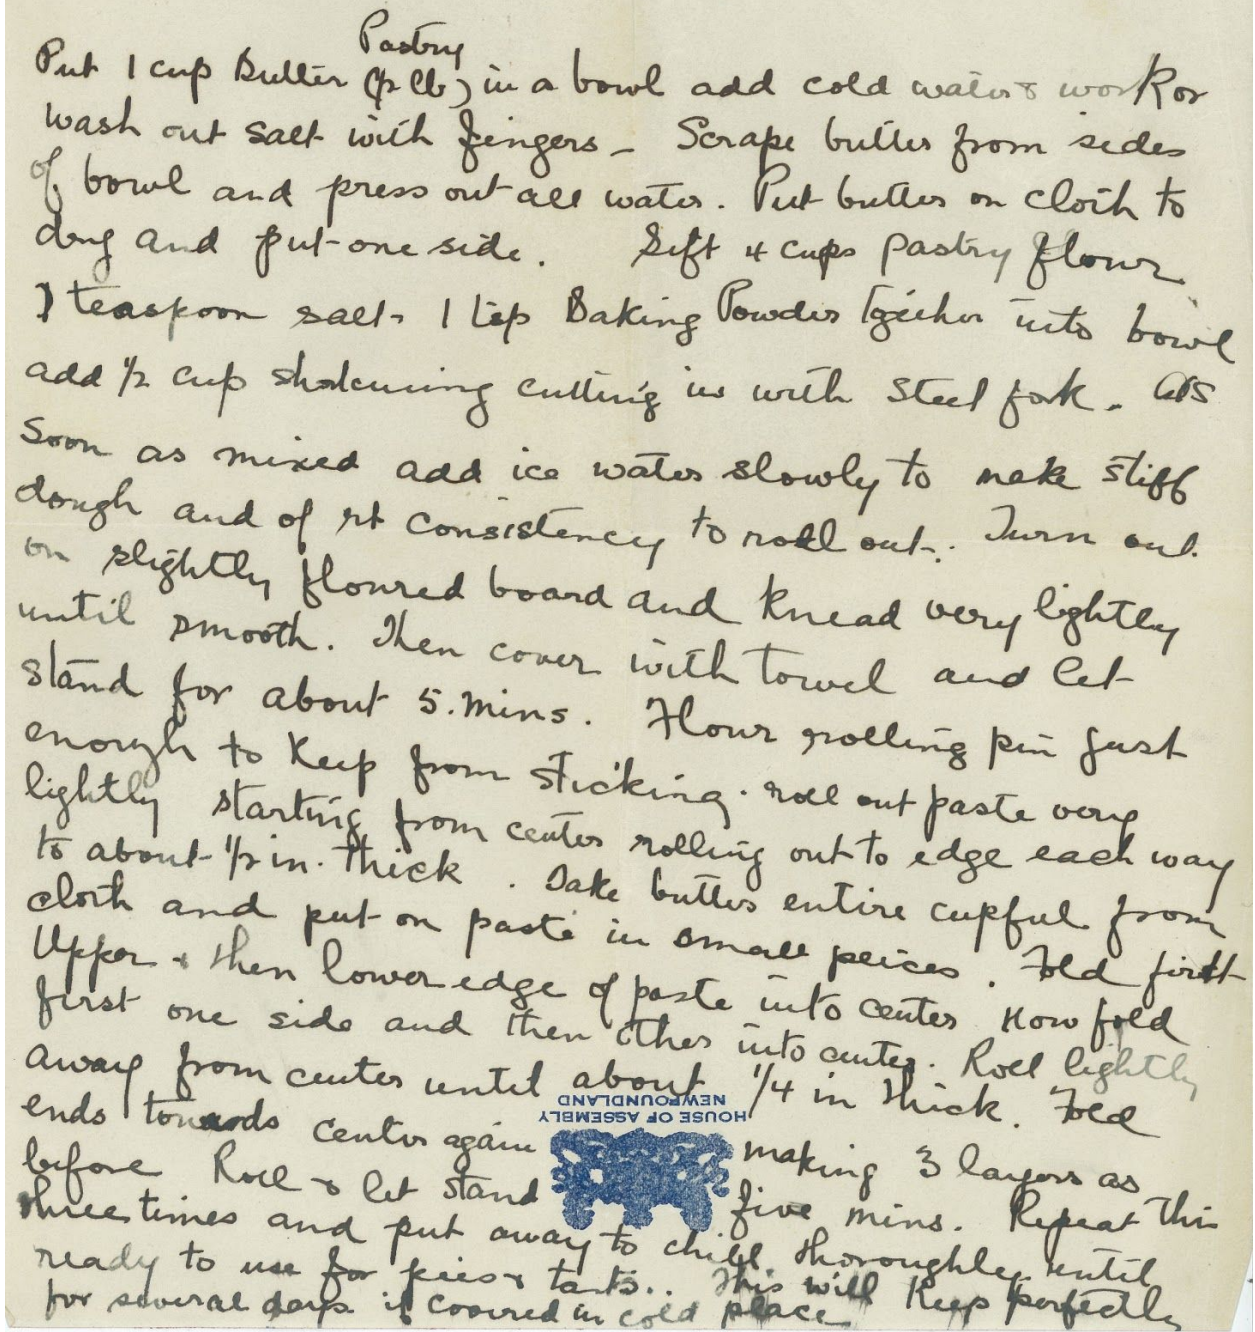 Pastry
Put 1 cup Butter (½ lb) in a bowl add cold water & work or
wash out salt with fingers – Scrape butter from sides
of bowl and press out all water. Put butter on cloth to
dry and put one side. Sift 4 cups Pastry flour
1 teaspoon salt – 1 tsp Baking Powder together into bowl
add ½ cup shortening cutting in with steel fork. As
soon as mixed add ice water slowly to make stiff
dough and of rt consistency to roll out. Turn out
on slightly floured board and knead very lightly
until smooth. Then cover with towel and let
stand for about 5. mins. Flour rolling pin just
enough to keep from sticking. roll out paste very
lightly starting from center rolling out to edge each way
to about ½ in. thick. Take butter entire cupful from
cloth and put on paste in small peices. Fold first
Upper & then lower edge of paste into center Now fold
first one side and then other into center. Roll lightly
away from center until about 1/4 in thick. Fold
HOUSE OF ASSEMBLY
NEWFOUNDLAND
ends towards center again making 3 layers as
before Roll & let stand five mins. Repeat this
three times and put away to chill thoroughly until
ready to use for pies & tarts.. This will keep perfectly
for several days if covered in cold place